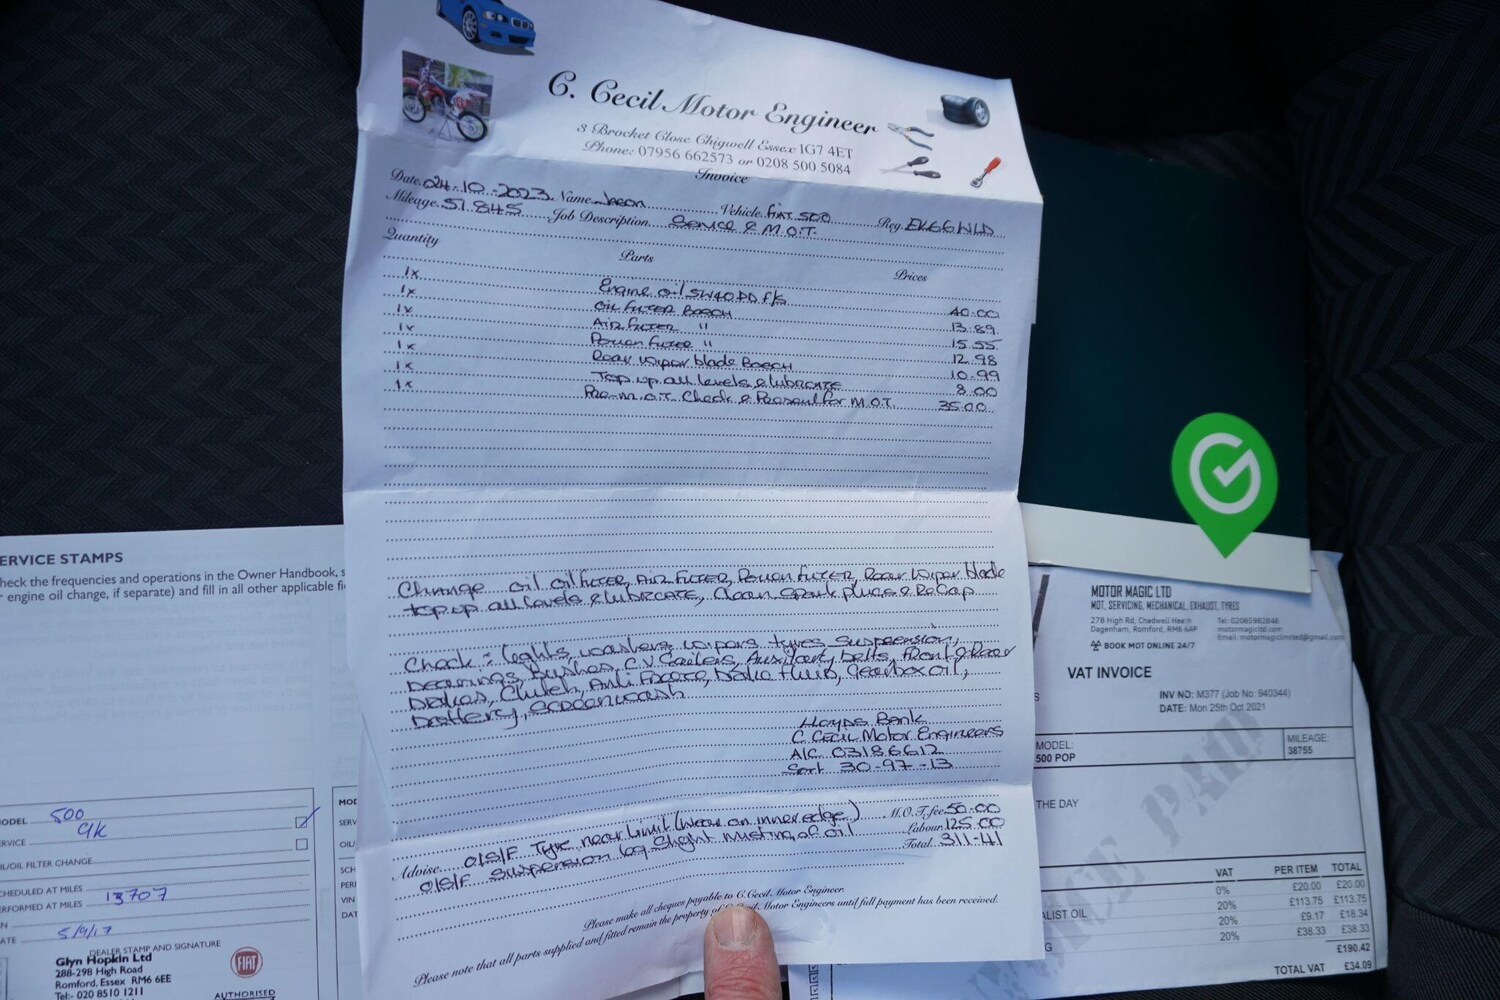 C. Cecil Motor Engineer
3 Brocket Close Chigwell Essex IG7 4ET
Phone: 07956 662573 or 0208 500 5084
Invoice
Date 04-10-2023 Name Vehicle FIAT 500 Reg EK66
Mileage 57.845 Job Description Service & M.O.T.
Quantity Parts Prices
1x Engine oil 5W40 F/S 40.00
1x OIL FILTER BOSCH 13.89
1x AIR FILTER " 15.55
1x Pollen FILTER " 12.98
1x Rear Wiper blade BOSCH 10.99
1x Top up all levels & lubricate 8.00
1x Pre-M.O.T. Check & Present for M.O.T. 35.00
Change oil oil FILTER, AIR FILTER, Pollen FILTER, Rear Wiper blade
top up all levels & lubricate, Clean Spark plugs & ReGap
Check:- lights, washers wipers tyres suspension,
bearings, bushes, C.V Gaiters, Auxiliary belts, Front & Rear
brakes, Clutch, Anti Freeze, brake fluid, Gearbox oil,
battery, Screenwash
Lloyds Bank
C. Cecil Motor Engineers
A/C 03186612
Sort 30-97-13
Advise O/S/F Tyre near limit (wear on inner edge) M.O.T fee 50.00
O/S/F Suspension leg slight misting of oil Labour 125.00
Total 311-41
Please make all cheques payable to C. Cecil Motor Engineer.
Please note that all parts supplied and fitted remain the property of Motor Engineers until full payment has been received.
ERVICE STAMPS
heck the frequencies and operations in the Owner Handbook, s
engine oil change, if separate) and fill in all other applicable fi
ODEL 500
RVICE
OIL/OIL FILTER CHANGE
CHEDULED AT MILES
ERFORMED AT MILES 13707
ATE 5/9/17
DEALER STAMP AND SIGNATURE
Glyn Hopkin Ltd
288-298 High Road
Romford, Essex RM6 6EE
Tel:- 020 8510 1211
FIAT
AUTHORISED
MOTOR MAGIC LTD
MOT, SERVICING, MECHANICAL, EXHAUST, TYRES
278 High Rd, Chadwell Heath Tel: 02085982848
Dagenham, Romford, RM6 6AP motormagicltd.com
Email: motormagiclimited@gmail.com
BOOK MOT ONLINE 24/7
VAT INVOICE
INV NO: M377 (Job No: 940344)
DATE: Mon 25th Oct 2021
MODEL: MILEAGE:
500 POP 38755
THE DAY
VAT PER ITEM TOTAL
0% £20.00 £20.00
20% £113.75 £113.75
ALIST OIL 20% £9.17 £18.34
G 20% £38.33 £38.33
£190.42
TOTAL VAT £34.09